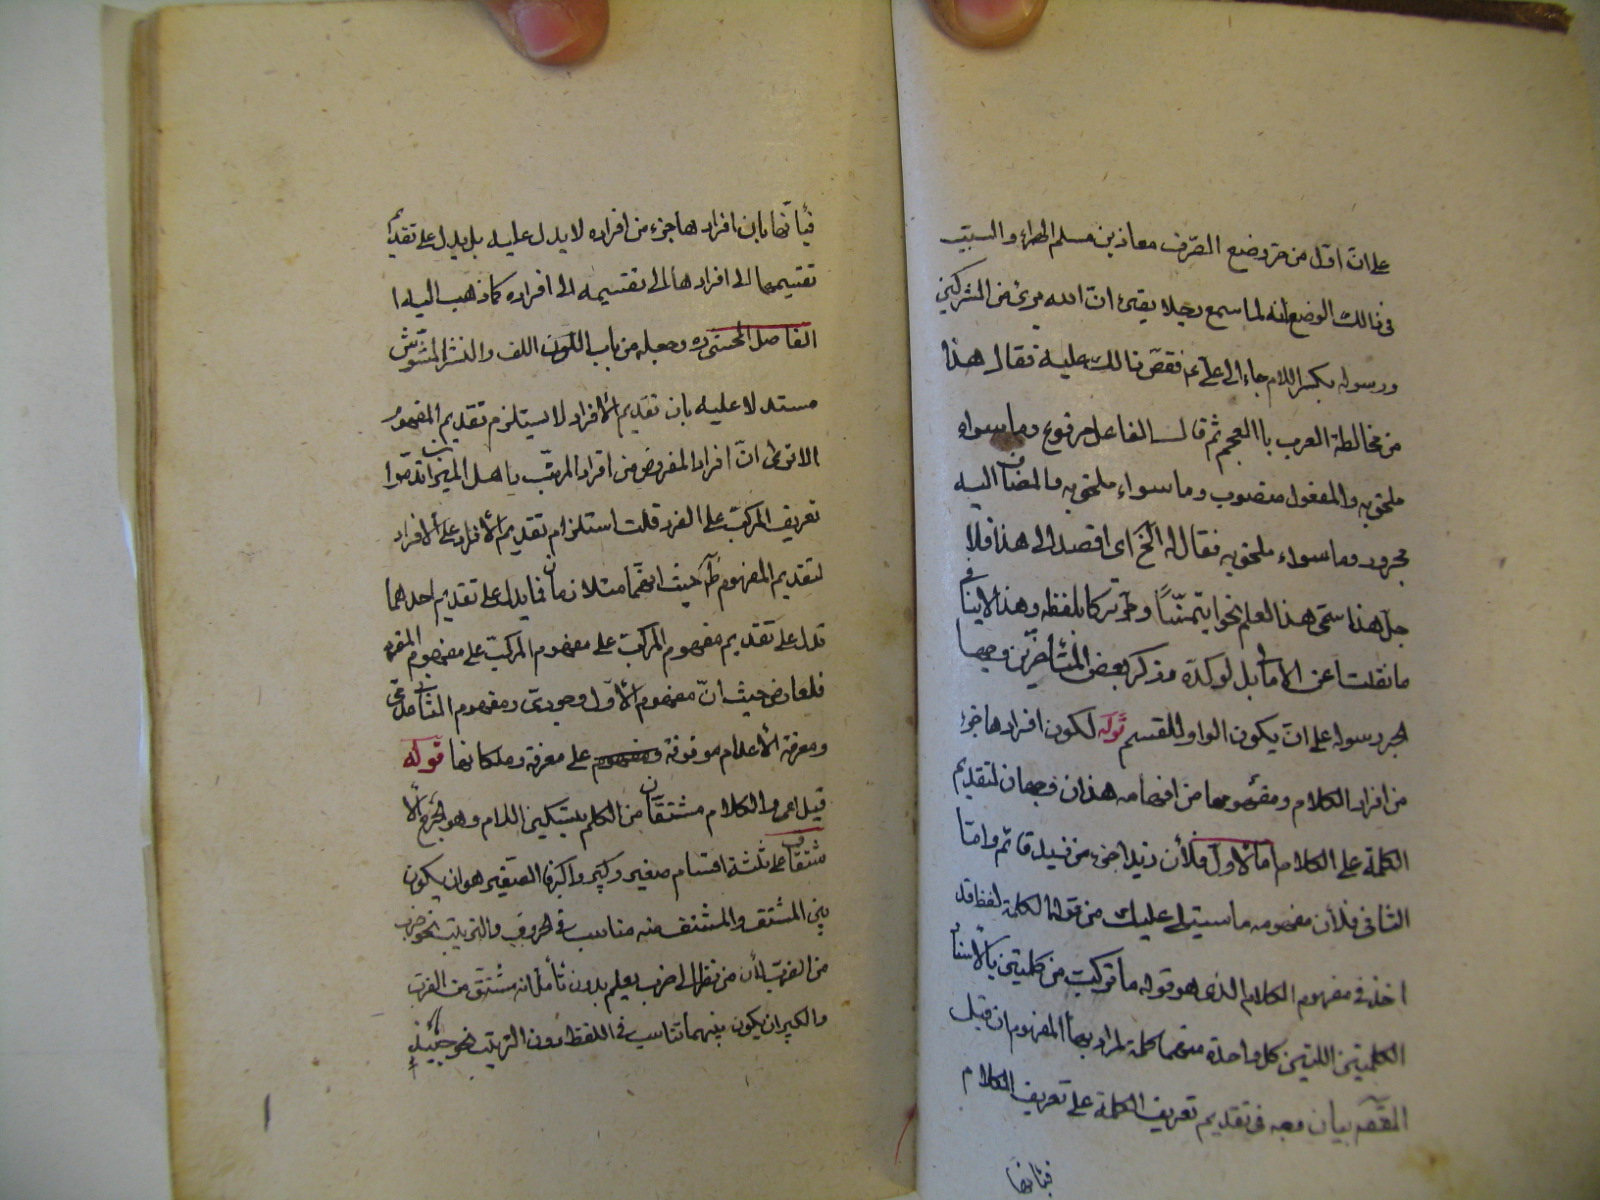 على ان اول من حرر وضع الصرف معاذ بن مسلم الهراء والسبب
فى ذالك الوضع انه لما سمع رجلا يقرئ ان الله برئ من المشركين
ورسوله بكسر اللام جاء الى على ع فقص ذالك عليه فقال هذا
من مخالطة العرب باالعجم ثم قال الفاعل مرفوع وما سواه
ملحق به والمفعول منصوب وما سواه ملحق به والمضاف اليه
مجرور وما سواه ملحق به فقال له انح اى اقصد الى هذا فلا
جل هذا سمى هذا العلم نحوا تيمنا و تبركا بلفظه وهذا لا ينافى
ما نقلت عن الاما بل لوكدة وذكر بعض المتأخرين وجها
لجر رسوله على ان يكون الواو للقسم قوله لكون افرادها جزء
من افراد الكلام ومفهومها من افهامه هذان وجهان لتقديم
الكلمة على الكلام اما الاول فلأن زيدا جزء من زيد قائم واما
الثانى فلأن مفهومه ما سيتلى عليك من قوله الكلمة لفظ قد
اخذ فى مفهوم الكلام الذى هو قوله ما تركب من كلمتين بالاسناد
الكلمتين اللتين كل واحدة منهما كلمة المراد بها المفهوم ان قيل
المقصه بيان وجه فى تقديم تعريف الكلمة على تعريف الكلام
فبيانها
فبيانها بان افرادها جزء من افراده لا يدل عليه بل يدل على تقديم
تقسيمها الى افرادها الى تقسيمه الى افراده كما ذهب اليه ا
الفاضل المحشى ره وجعله من باب اللون اللف والنشر المشوش
مستدلا عليه بان تقديم الافراد لا يستلزم تقديم المفهوم
الا ترى ان افراد المفرد من افراد المركب و اهل الميزان قدموا
تعريف المركب على المفرد قلت استلزام تقديم الافراد على الافراد
لتقديم المفهوم حيث انهما متلازمان فما يدل على تقديم احدهما
تدل على تقديم مفهوم المركب على مفهوم المركب على مفهوم المفرد
فلعارض حيث ان مفهوم الاول وجودى ومفهوم الثانى عدمى
ومعرفة الأعلام موقوفة ومفهوم على معرفة وملكاتها قوله
قيل اى والكلام مشتقان من الكلم بتسكين اللام وهو الجرح الا
شتقاق على ثلثة اقسام صغير وكبير واكبر فا الصغير هو ان يكون
بين المشتق والمشتق منه مناسب فى الحروف والترتيب نحو ضرب
من الضرب لأن من نظر الى ضرب يعلم بدون تأمل انه مشتق من الضرب
والكبير ان يكون بينهما تناسب فى اللفظ دون الترتيب نحو جبذ